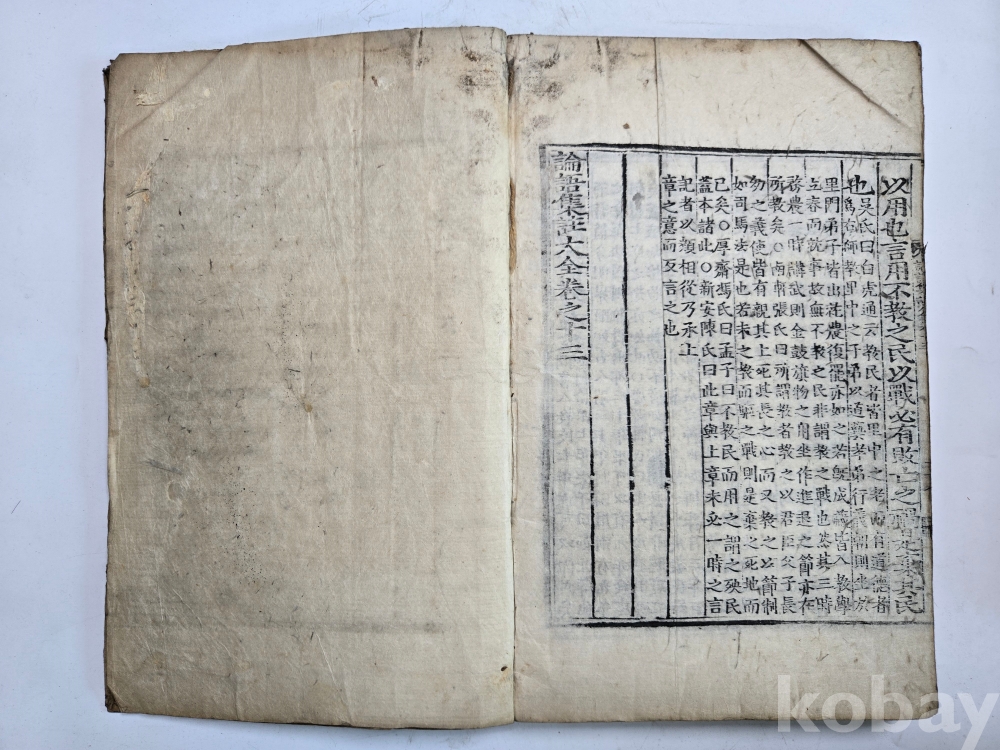 以用也言用不教之民以戰必有敗亡之禍是棄其民
也
吳氏曰白虎通云教民者皆里中之老而有道德者
爲右師教里中之子弟以道藝孝弟行義朝則坐於
里門弟子皆出就農復罷亦如之若旣成藏皆入教學
立春而就事故無不教之民非謂教之戰也然其三時
務農一時講武則金鼓旗物之用坐作進退之節亦在
所教矣○南軒張氏曰所謂教者教之以君臣父子長
幼之義使皆有親其上死其長之心而又教之以節制
如司馬法是也若未之教而驅之戰則是棄之死地而
已矣○厚齋馮氏曰孟子曰不教民而用之謂之殃民
蓋本諸此○新安陳氏曰此章與上章未必一時之言
記者以類相從乃承上
章之意而互言之也
論語集註大全卷之十三
kobay